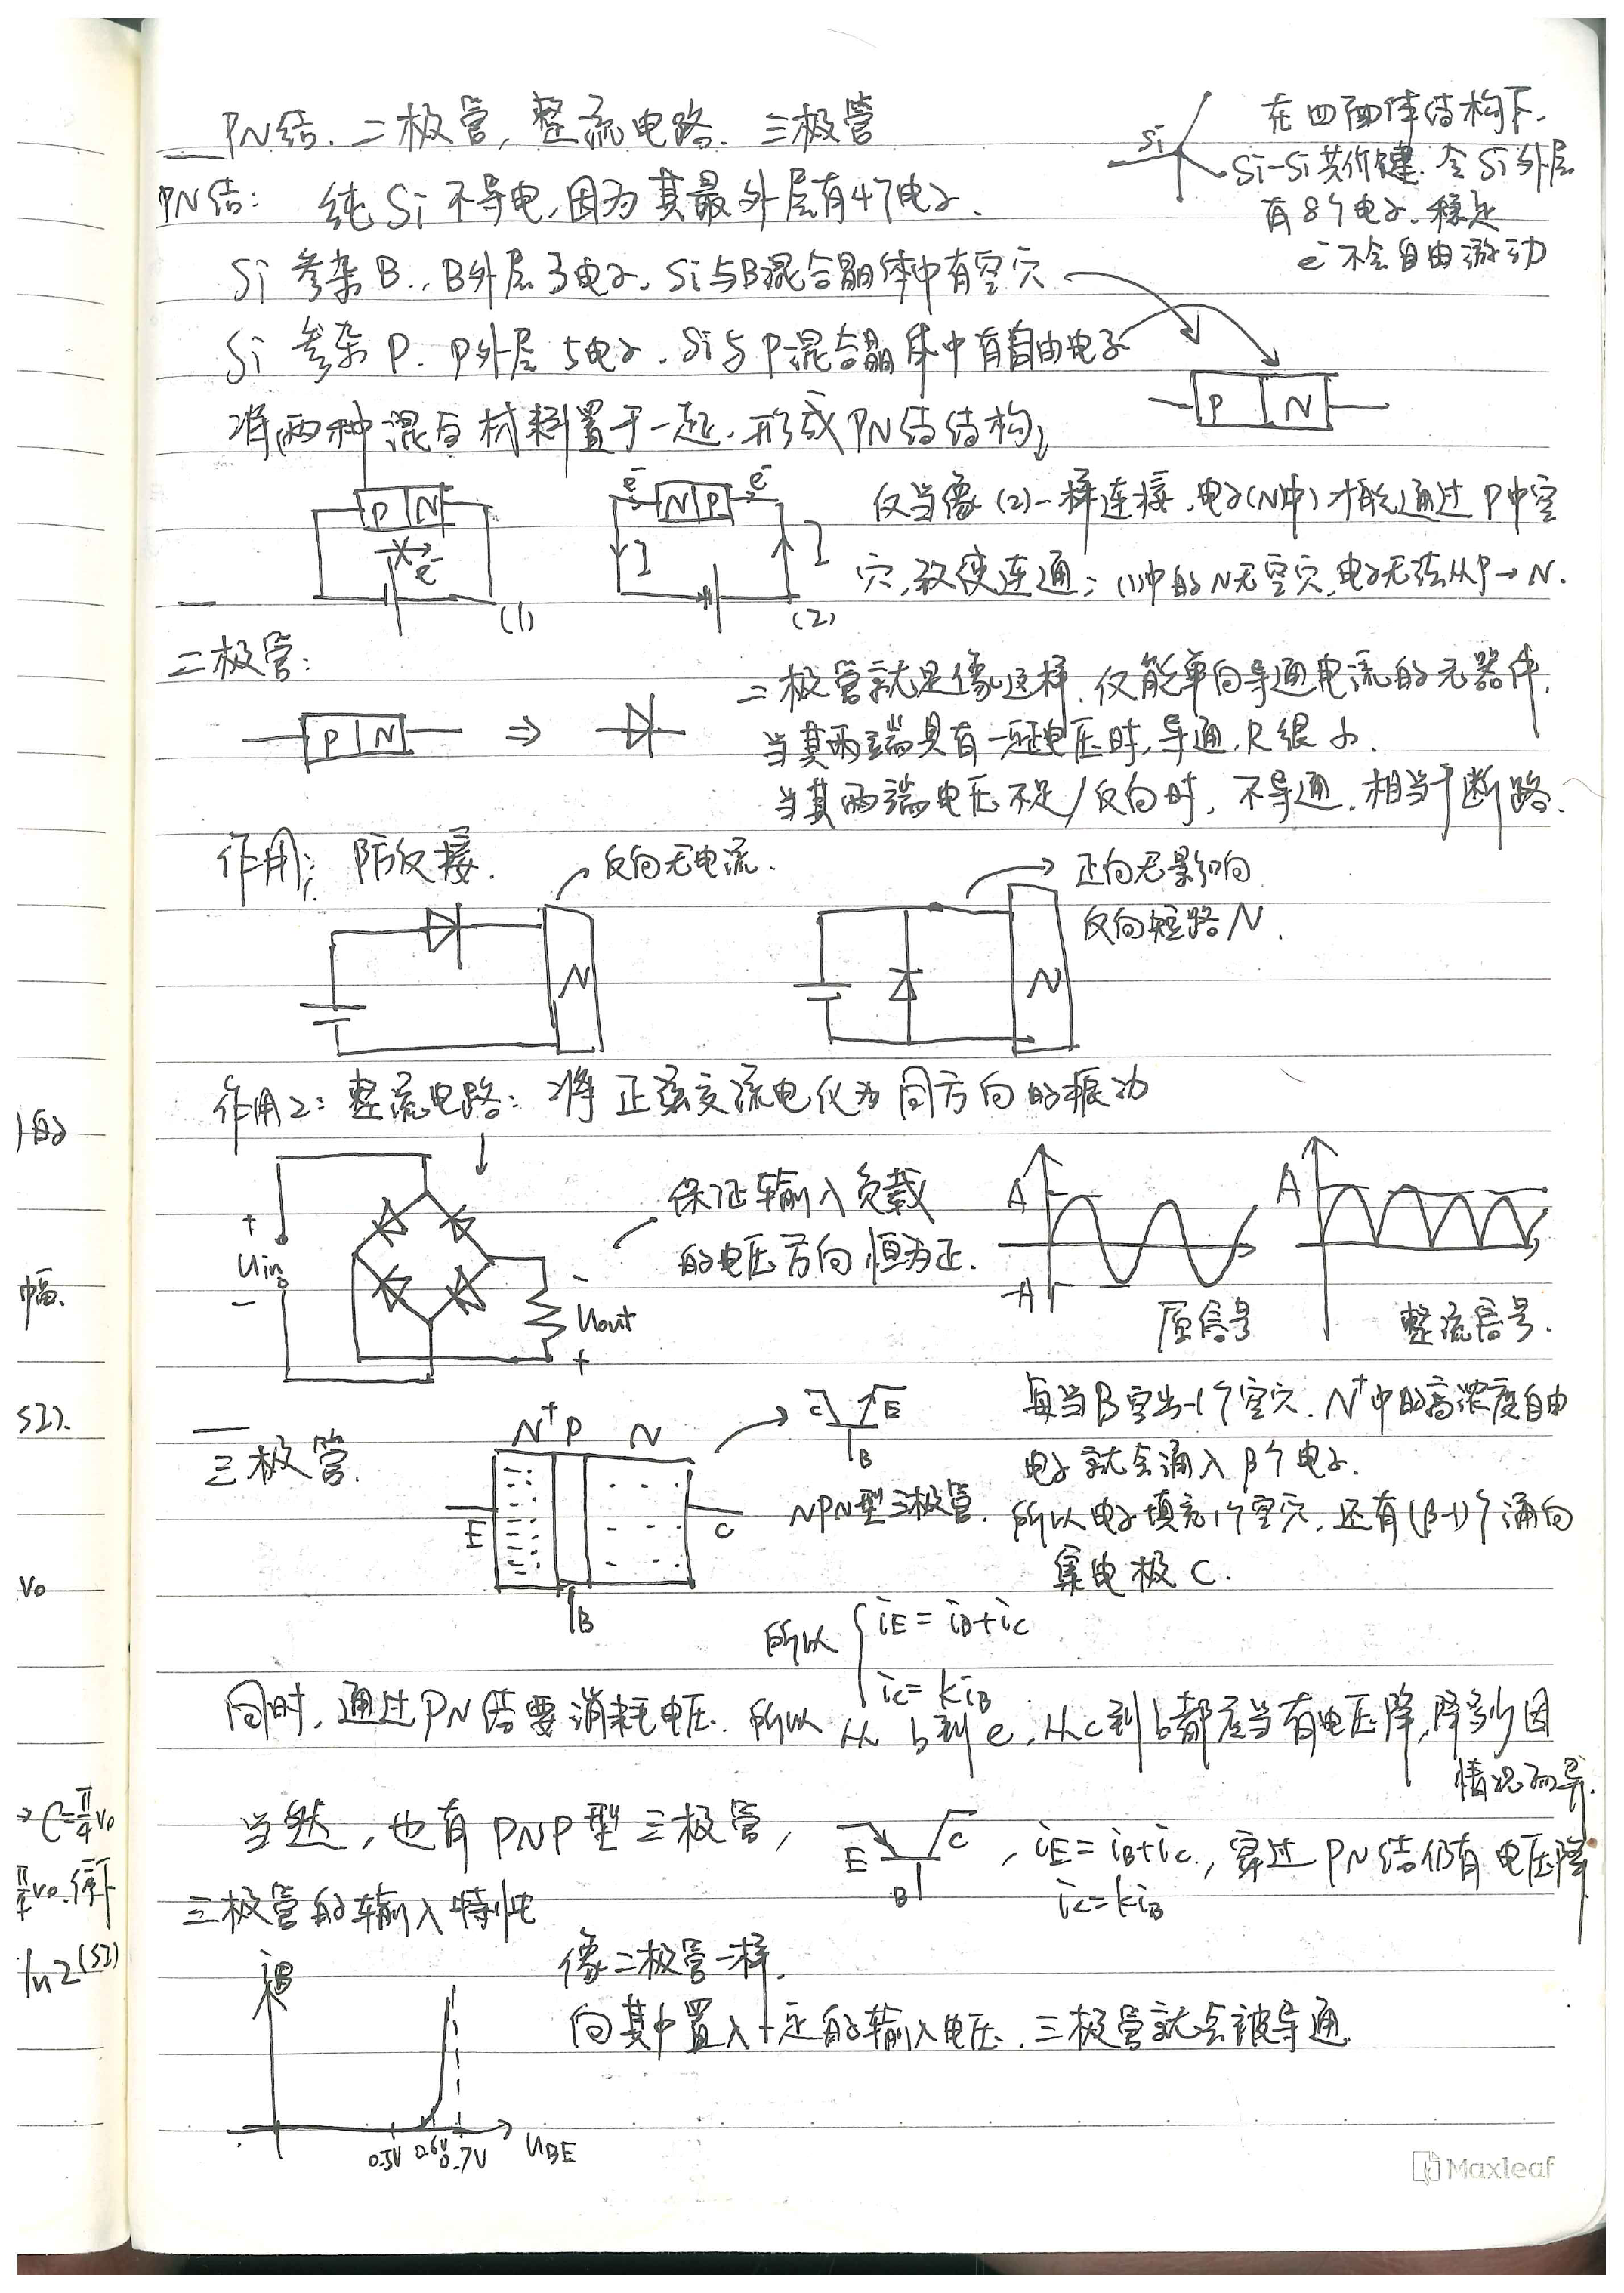 PN结. 二极管, 整流电路. 三极管
Si
在四面体结构下.
Si-Si共价键. 令Si外层
有8个电子. 稳定
e⁻不会自由流动
PN结: 纯Si不导电,因为其最外层有4个电子.
Si 参杂B., B外层3电子. Si与B混合晶体中有空穴
Si 参杂P. P外层5电子. Si与P混合晶体中有自由电子
P N
将两种混合材料置于一起. 形成PN结结构
P N
e⁻
(1)
e⁻ N P e⁻
I I
(2)
仅当像(2)一样连接,电子(N中)才能通过P中空
穴,致使连通; (1)中的N无空穴,电子无法从P→N.
二极管:
P N ⇒
二极管就是像这样,仅能单向导通电流的元器件.
当其两端具有一定电压时,导通,R很小.
当其两端电压不足/反向时, 不导通. 相当于断路.
作用1: 防反接.
反向无电流.
N
正向无影响
反向短路N.
N
作用2: 整流电路: 将正弦交流电化为同方向的振动
+
Uin
-
-
Uout
+
保证输入负载
的电压方向恒为正.
A
-A
原信号
A
整流信号.
三极管.
N⁺ P N
E
C
B
C E
B
NPN型三极管.
每当B空出一个空穴. N⁺中的高浓度自由
电子就会涌入β个电子.
所以电子填充1个空穴, 还有(β-1)个涌向
集电极C.
所以 { iE = iB+iC
iC = kiB
同时, 通过PN结要消耗电压. 所以从b到e,从c到b都应当有电压降,降多少因
情况而异.
当然, 也有PNP型三极管,
E C
B
, iE = iB+iC, 穿过PN结仍有电压降
iC = kiB
三极管的输入特性
iB
0.5V 0.6V 0.7V UBE
像二极管一样.
向其中置入一定的输入电压. 三极管就会被导通
1的
幅.
SI).
V₀
→ C=π/4 V₀
ln2(SI)
Maxleaf